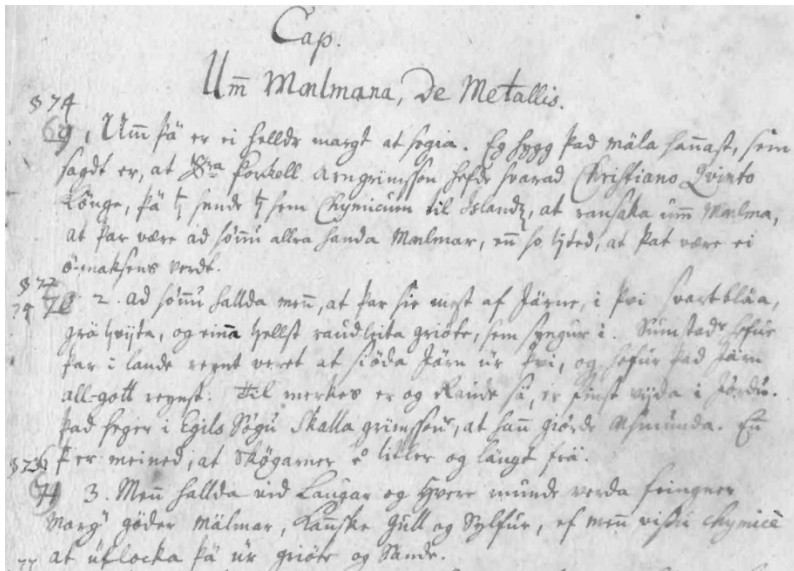 Cap.
Um̄ Malmana, De Metallis.
§ 74
69, Um̄ þä er ei helldr margt at segia. Eg hygg þad mäla sannast, sem
sagdt er, at Sra Þorkell Arngrimsson hefde svarad Christiano Qvinto
Könge, þä sende sem Chymicum til Islands, at ransaka um̄ Malma,
at þar være ad sönnu allra handa Malmar, en̄ so lÿted, at þat være ei
ömaksens verdt.
70 2. ad sönnu hallda men̄, at þar sie mest af Järne, i þvi svartbläa,
grä hvÿta, og einna hellst raudleita griöte, sem syngur i. Sumstadr hefur
þar i lande reynt veret at siöda Järn ür þvi, og hefur þad Järn
all-gott reynst. Til merkes er og Raude sä, er finst vÿda i Jördu.
þad seger i Egils Sögu Skalla grimssonr, at han̄ giörde. En̄
þ er meined, at Skögarner litler og längt frä.
71 3. Men̄ hallda vid Laugar og Hvere munde verda feingner
marg göder mälmar, kan̄ske Gull og Sylfur, ef men̄ vissu chymicè
at üflocka þä ür griöte og Sande.